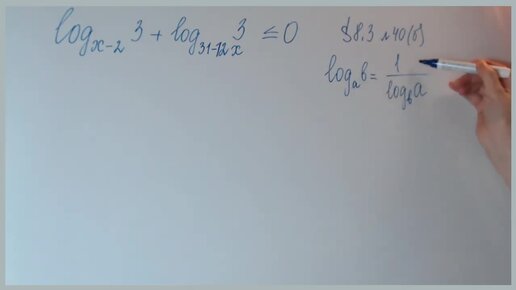 log_{x-2} 3 + log_{31-12x} 3 ≤ 0
§8.3 №40(б)
log_a b = \frac{1}{log_b a}